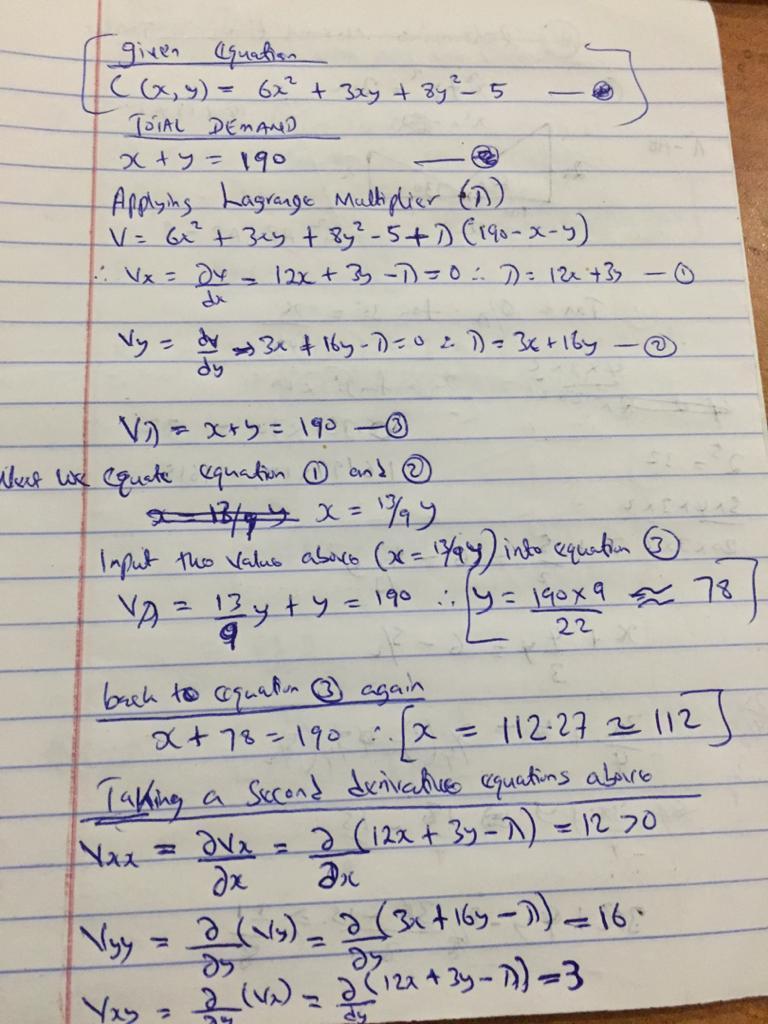 given equation
C(x,y) = 6x² + 3xy + 8y² - 5 —
TOTAL DEMAND
x + y = 190 —
Applying Lagrange Multiplier (λ)
V = 6x² + 3xy + 8y² - 5 + λ(190 - x - y)
∴ Vx = ∂v/dx = 12x + 3y - λ = 0 ∴ λ = 12x + 3y — ①
Vy = dv/dy → 3x + 16y - λ = 0 ∴ λ = 3x + 16y — ②
Vλ = x + y = 190 — ③
Next we equate equation ① and ②
x = 13/9 y x = 13/9 y
Input the value above (x = 13/9 y) into equation ③
Vλ = 13/9 y + y = 190 ∴ [y = 190×9/22 ≈ 78]
back to equation ③ again
x + 78 = 190 ∴ [x = 112.27 ≃ 112]
Taking a Second derivative equations above
Vxx = ∂Vx/∂x = ∂/∂x (12x + 3y - λ) = 12 > 0
Vyy = ∂/∂y (Vy) = ∂/∂y (3x + 16y - λ) = 16
Vxy = ∂/∂y (Vx) = ∂/dy (12x + 3y - λ) = 3